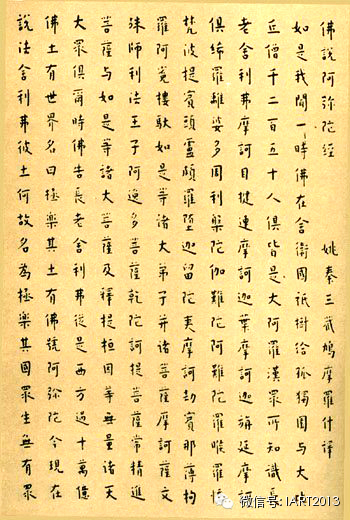 佛說阿弥陀經　姚秦三藏鳩摩羅什譯
如是我聞一時佛在舍衛國祇樹給孤獨園與大比
丘僧千二百五十人俱皆是大阿羅漢眾所知識長
老舍利弗摩訶目揵連摩訶迦葉摩訶迦旃延摩訶
俱絺羅離婆多周利槃陀伽難陀阿難陀羅睺羅憍
梵波提賓頭盧頗羅墮迦留陀夷摩訶劫賓那薄拘
羅阿㝹樓馱如是等諸大弟子并諸菩薩摩訶薩文
殊師利法王子阿逸多菩薩乾陀訶提菩薩常精進
菩薩與如是等諸大菩薩及釋提桓因等無量諸天
大眾俱爾時佛告長老舍利弗從是西方過十萬億
佛土有世界名曰極樂其土有佛號阿弥陀今現在
說法舍利弗彼土何故名為極樂其國眾生無有眾
微信号: IART2013